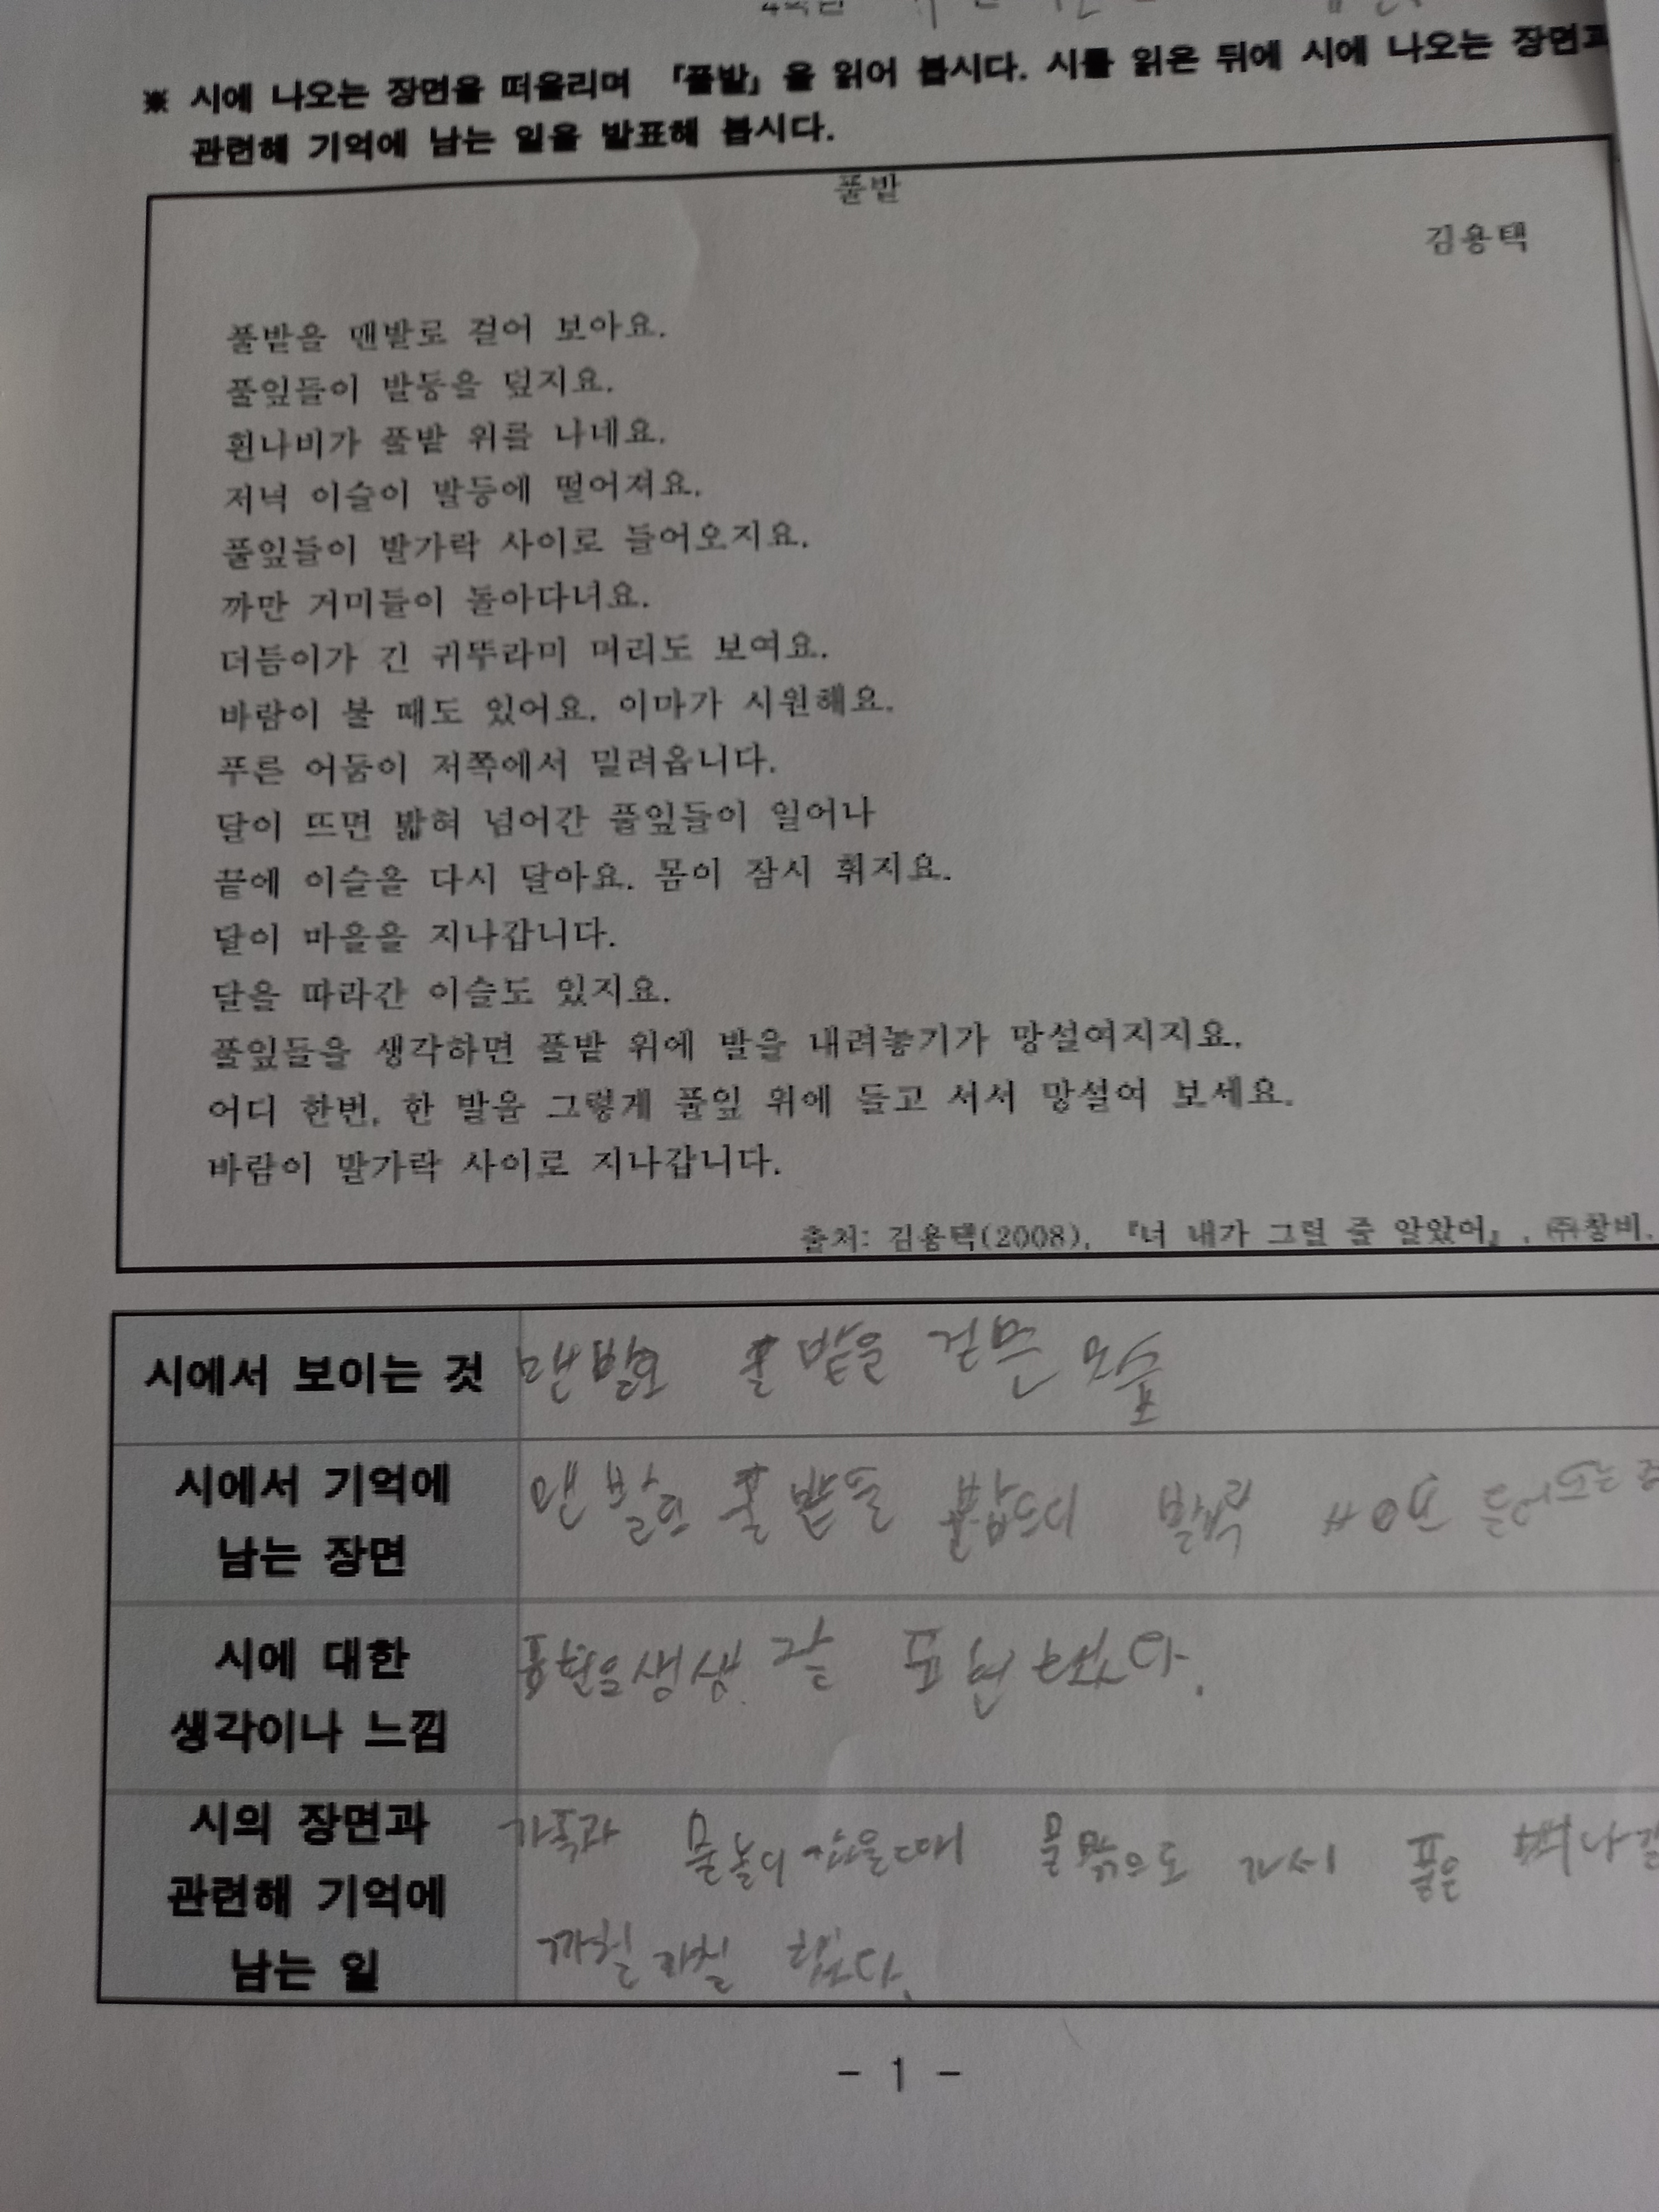 ※ 시에 나오는 장면을 떠올리며 「풀밭」을 읽어 봅시다. 시를 읽은 뒤에 시에 나오는 장면과
관련해 기억에 남는 일을 발표해 봅시다.
풀밭
김용택
풀밭을 맨발로 걸어 보아요.
풀잎들이 발등을 덮지요.
흰나비가 풀밭 위를 나네요.
저녁 이슬이 발등에 떨어져요.
풀잎들이 발가락 사이로 들어오지요.
까만 거미들이 돌아다녀요.
더듬이가 긴 귀뚜라미 머리도 보여요.
바람이 불 때도 있어요. 이마가 시원해요.
푸른 어둠이 저쪽에서 밀려옵니다.
달이 뜨면 밟혀 넘어간 풀잎들이 일어나
끝에 이슬을 다시 달아요. 몸이 잠시 휘지요.
달이 마을을 지나갑니다.
달을 따라간 이슬도 있지요.
풀잎들을 생각하면 풀밭 위에 발을 내려놓기가 망설여지지요.
어디 한번, 한 발을 그렇게 풀잎 위에 들고 서서 망설여 보세요.
바람이 발가락 사이로 지나갑니다.
출처: 김용택(2008), 『너 내가 그럴 줄 알았어』, ㈜창비.
시에서 보이는 것
맨발로 풀밭을 걷는 모습
시에서 기억에
남는 장면
맨발로 풀밭을
시에 대한
생각이나 느낌
표현을 생생 표현
시의 장면과
관련해 기억에
남는 일
가족과 물놀이 갔을때 물밖으로 풀은
까칠까칠 했다.
- 1 -